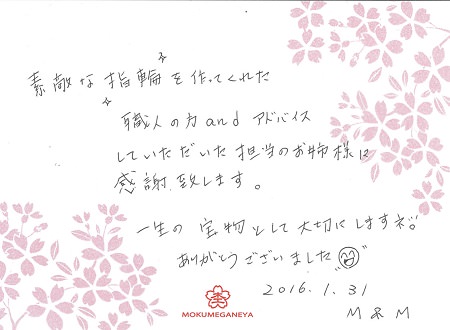 素敵な指輪を作ってくれた
職人の方and アドバイス
していただいた担当のお姉様に
感謝致します。
一生の宝物として大切にしますネ!!
ありがとうございました
2016.1.31
M & M
MOKUMEGANEYA